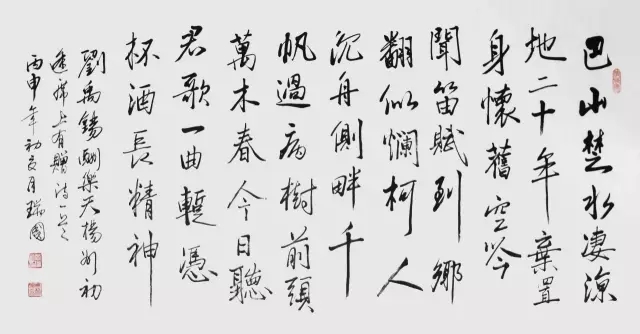 巴山楚水凄涼
地二十年棄置
身懷舊空吟
聞笛賦到鄉
翻似爛柯人
沉舟側畔千
帆過病樹前頭
萬木春今日聽
君歌一曲暫憑
杯酒長精神
劉禹錫酬樂天楊州初
逢席上有贈詩
丙申年初夏月瑞國